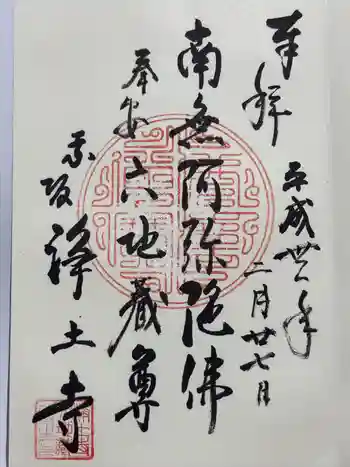 奉拝
平成卅一年
二月廿七日
南無阿弥陀佛
奉安六地蔵尊
赤坂浄土寺